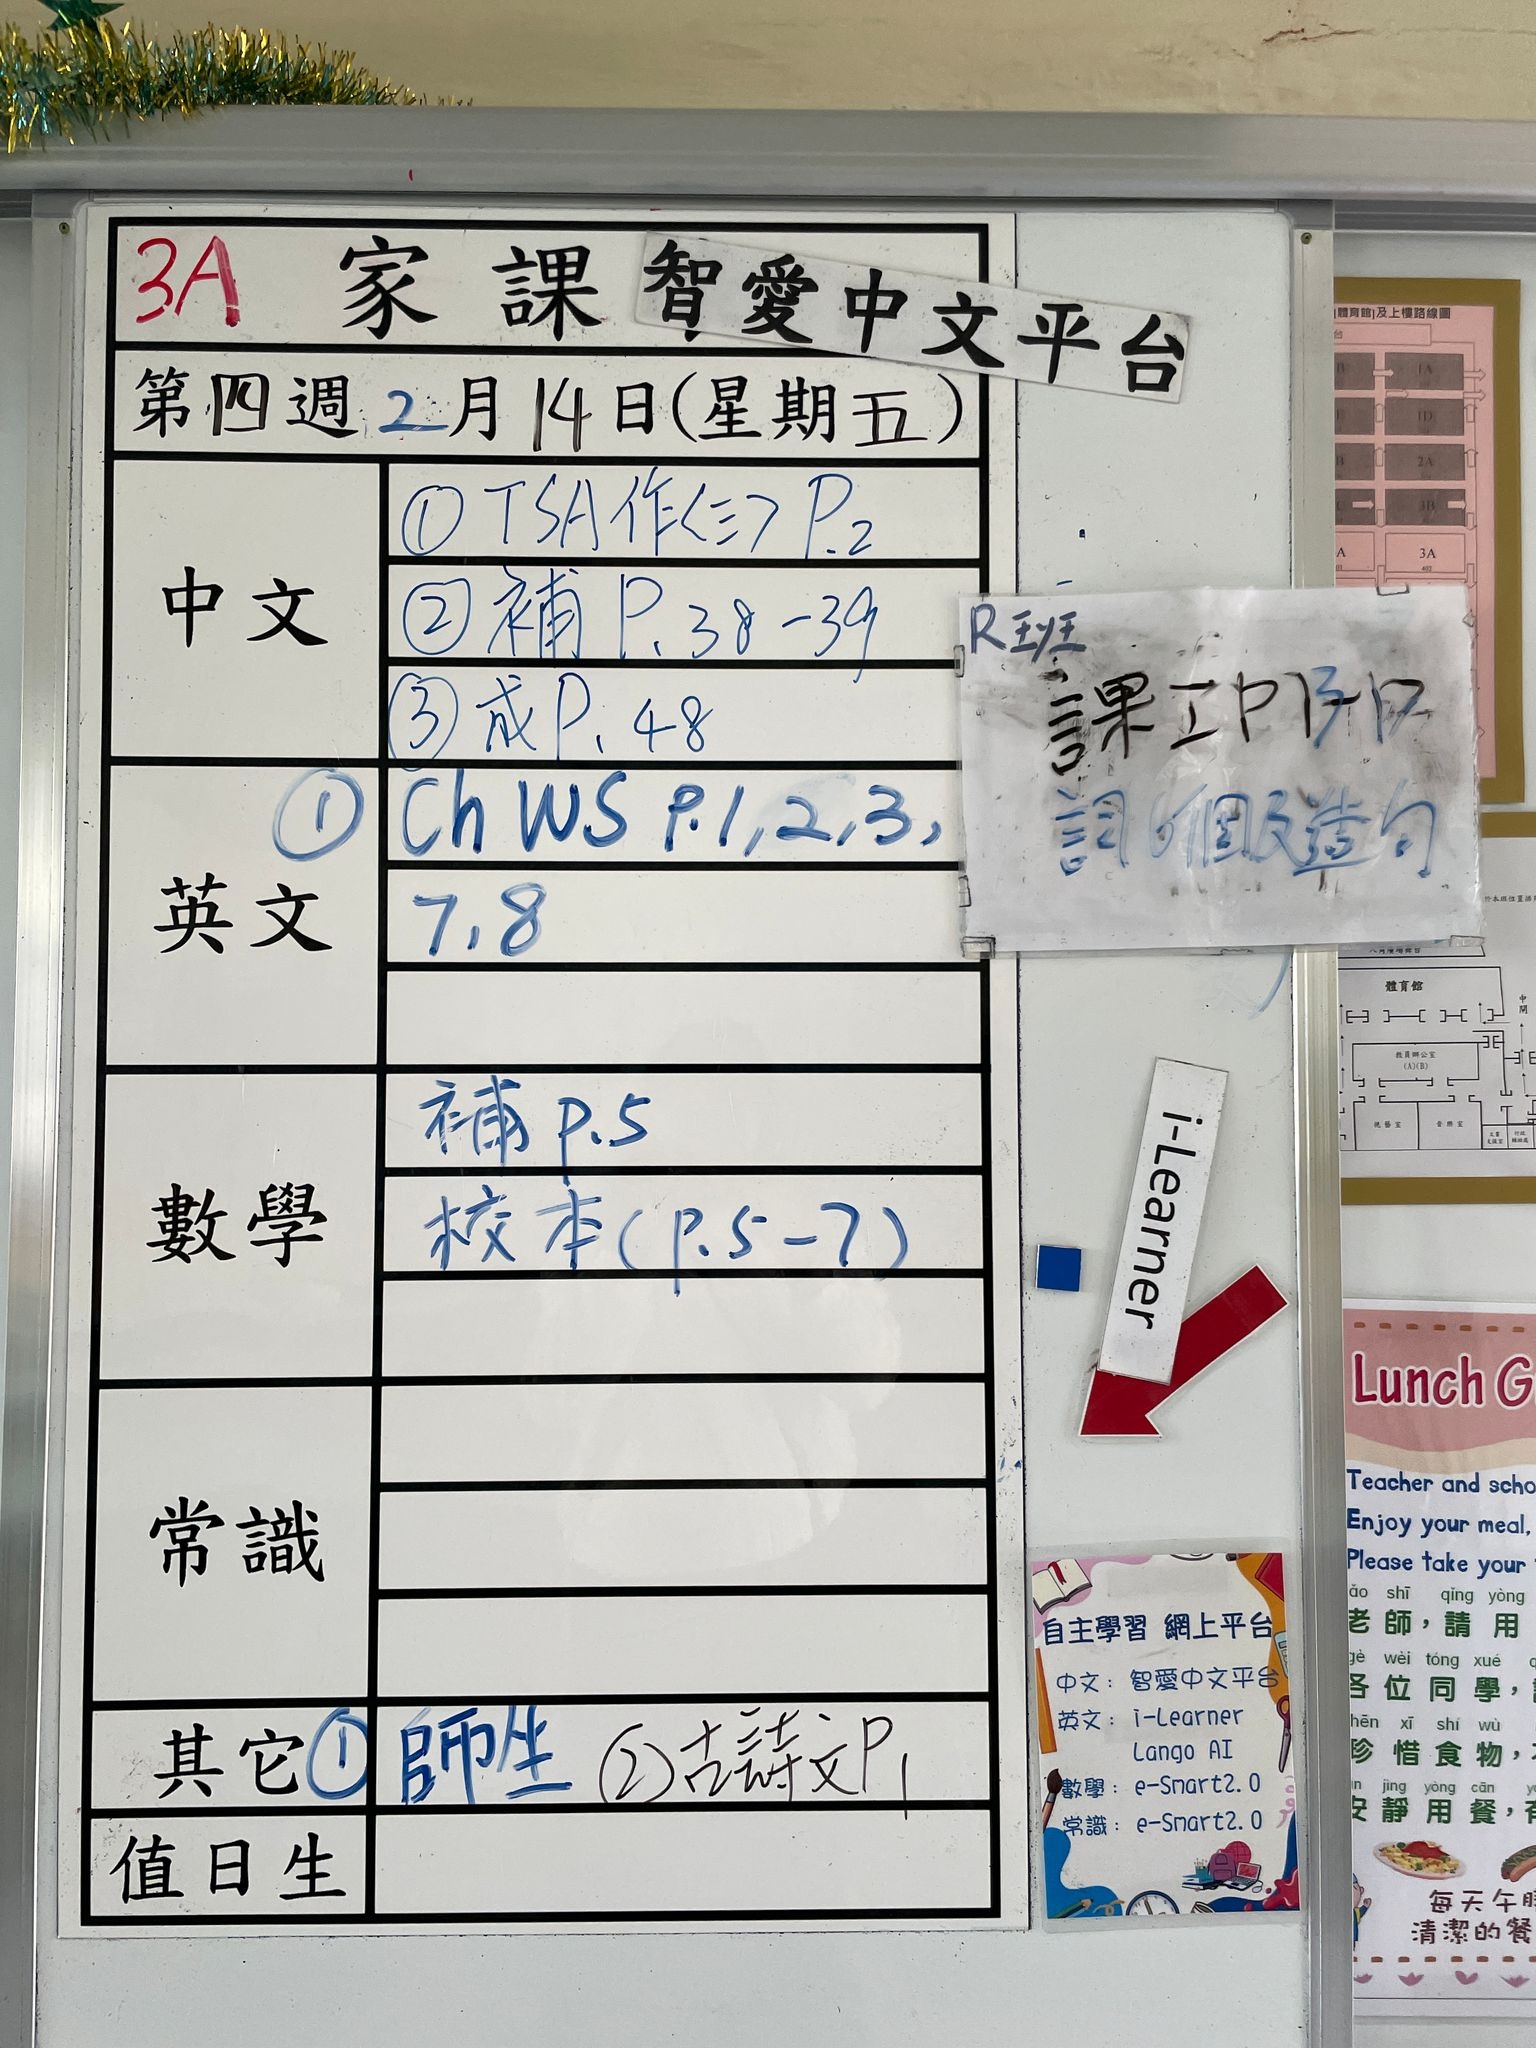 3A 家課
智愛中文平台
第四週2月14日(星期五)
中文
① TSA作<三> P.2
② 補 P. 38-39
③ 成P. 48
英文
① Ch WS P.1,2,3,
7,8
數學
補 p.5
校本(p.5-7)
常識
其它
① 師生 ②古詩文P1
值日生
R班
課工P
詞6個及造句
i-Learner
自主學習 網上平台
中文: 智愛中文平台
英文: i-Learner
Lango AI
數學: e-Smart2.0
常識: e-Smart2.0
體育館及上樓路線圖
1A
1D
2A
3B
3A
體育館
教員辦公室
(A)(B)
視藝室
音樂室
Lunch G
Teacher and scho
Enjoy your meal,
Please take your
ǎo shī qǐng yòng
老師,請用
gè wèi tóng xué
各位同學,
hēn xī shí wù
珍惜食物,
ān jìng yòng cān
安靜用餐,
每天午
清潔的餐